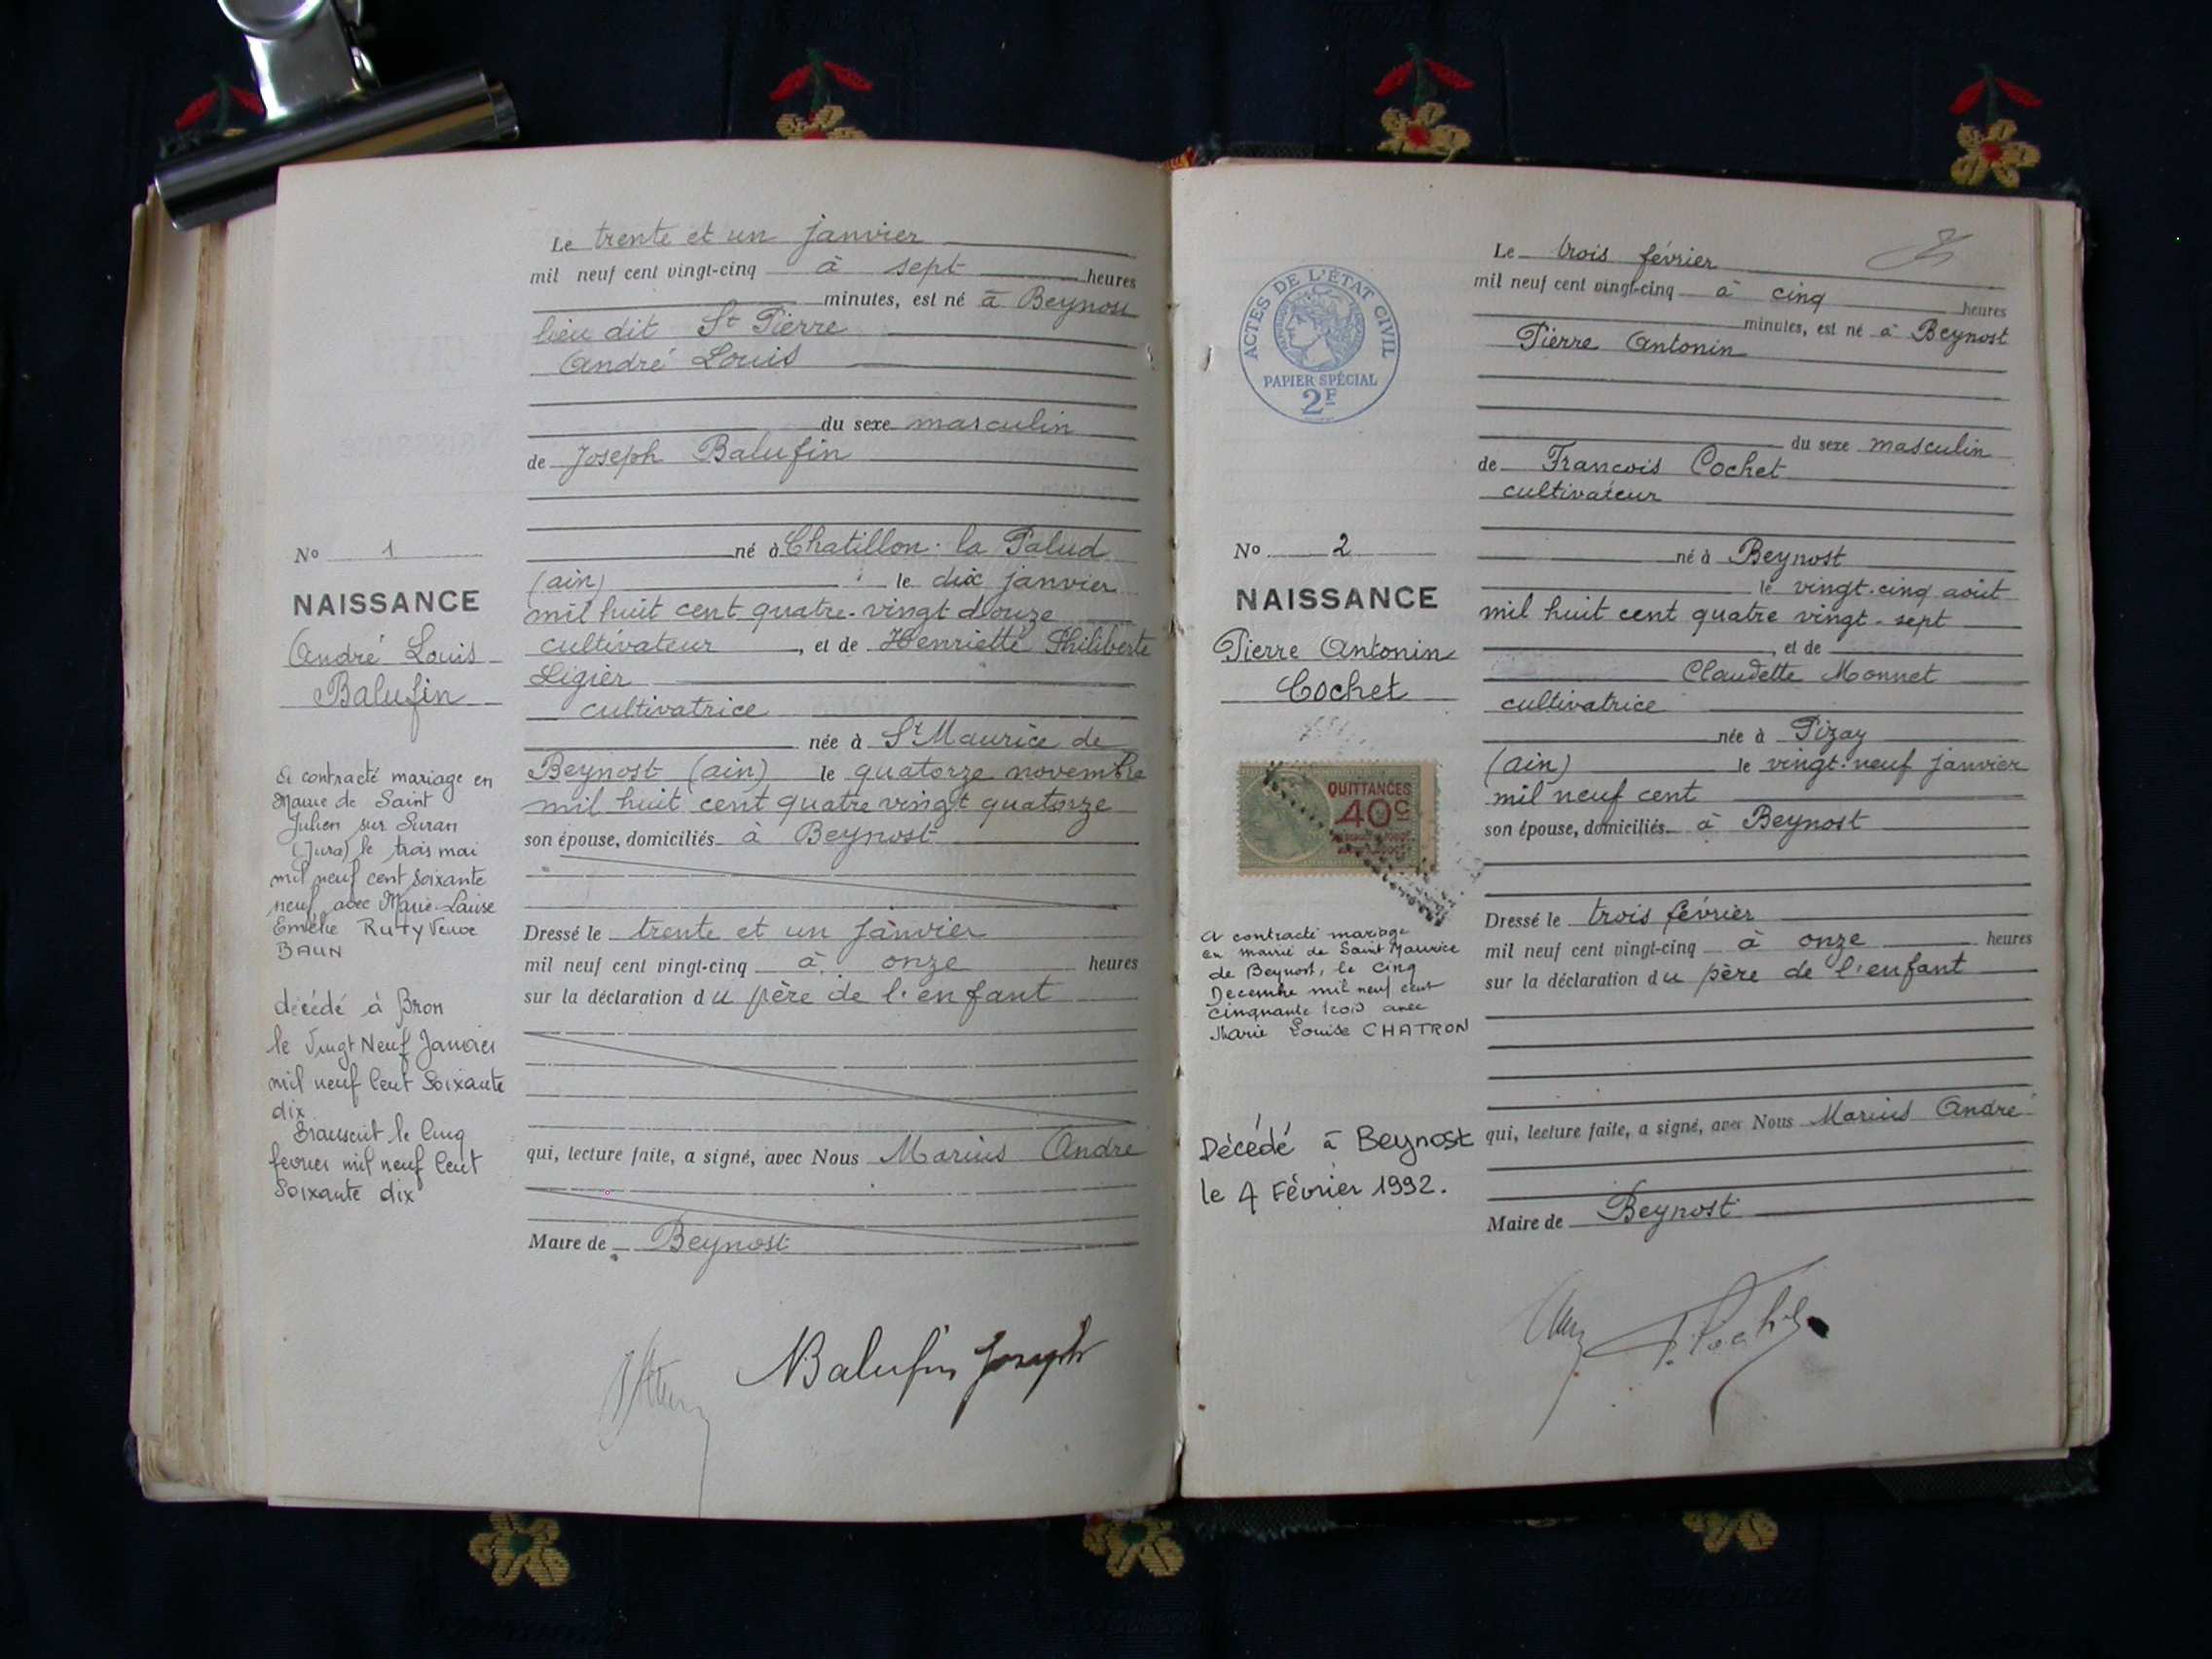 Le trente et un janvier
mil neuf cent vingt-cinq à sept heures
minutes, est né à Beynost
lieu dit St Pierre
André Louis
du sexe masculin
de Joseph Balufin
No 1
né à Chatillon-la Palud
NAISSANCE
(ain) le dix janvier
mil huit cent quatre-vingt douze
André Louis
cultivateur, et de Henriette Philiberte
Balufin
Ligier
cultivatrice
née à St Maurice de
Beynost (ain) le quatorze novembre
mil huit cent quatre vingt quatorze
son épouse, domiciliés à Beynost
A contracté mariage en
Mairie de Saint
Julien sur Suran
(Jura) le trois mai
mil neuf cent soixante
neuf avec Marie-Louise
Emélie Ruty Veuve
BAUN
Dressé le trente et un janvier
mil neuf cent vingt-cinq à onze heures
sur la déclaration du père de l'enfant
décédé à Bron
le Vingt Neuf Janvier
mil neuf Cent Soixante
dix
Transcrit le Cinq
fevrier mil neuf Cent
Soixante dix
qui, lecture faite, a signé, avec Nous Marius André
Maire de Beynost
Balufin Joseph
Le trois février
mil neuf cent vingt-cinq à cinq heures
minutes, est né à Beynost
Pierre Antonin
ACTES DE L'ÉTAT CIVIL
PAPIER SPÉCIAL
2F
du sexe masculin
de Francois Cochet
cultivateur
No 2
né à Beynost
NAISSANCE
le vingt-cinq août
mil huit cent quatre vingt-sept
Pierre Antonin
, et de
Cochet
Claudette Monnet
cultivatrice
née à Pizay
(ain) le vingt-neuf janvier
mil neuf cent
son épouse, domiciliés à Beynost
QUITTANCES
40c
Dressé le trois février
mil neuf cent vingt-cinq à onze heures
sur la déclaration du père de l'enfant
A contracté mariage
en mairie de Saint Maurice
de Beynost, le cinq
Decembre mil neuf cent
cinquante trois avec
Marie Louise CHATRON
qui, lecture faite, a signé, avec Nous Marius André
Décédé à Beynost
le 4 Février 1992.
Maire de Beynost